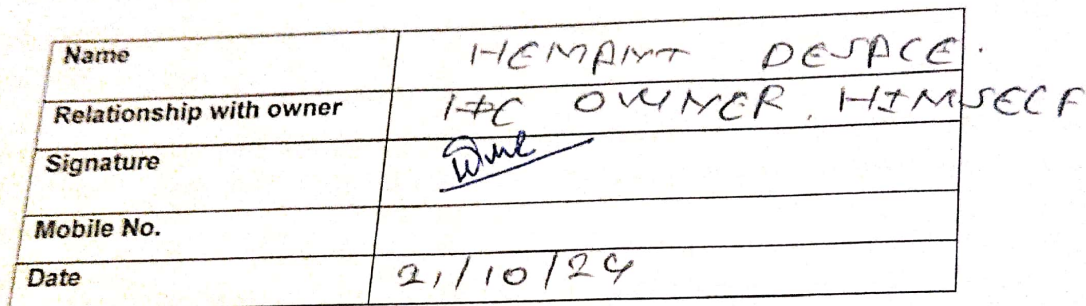 Name HEMANT DESALE.
Relationship with owner OWNER, HIMSELF
Signature
Mobile No.
Date 21/10/24